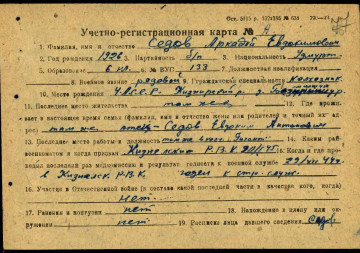 Учетно-регистрационная карта № А
1. Фамилия, имя и отчество Седов Аркадий Евдокимович
2. Год рождения 1926 3. Партийность б/п 4. Национальность Удмурт
5. Образование 6 кл. 6. № ВУС 133 7. Должностная квалификация
8. Военное звание рядовой 9. Гражданская специальность колхозник
10. Место рождения УАССР, Кизнерский р.
11. Последнее место жительства там же 12. Где прожи-
вает в настоящее время семья (фамилия, имя и отчество жены или родителей и точный их ад-
рес) там же отец Седов Евдоким
13. Последнее место работы и должность 14. Каким рай-
военкоматом и когда призван Кизнерским РВК 15. Когда и где про-
ходил последний раз медкомиссию и результат годности к военной службе
в Кизнерск. Р.В.К. годен к стр. службе.
16. Участие в Отечественной войне (в составе какой последней части, в качестве кого, когда)
нет
17. Ранения и контузии нет 18. Нахождение в плену или
окружении нет 19. Роспись лица давшего сведения Седов